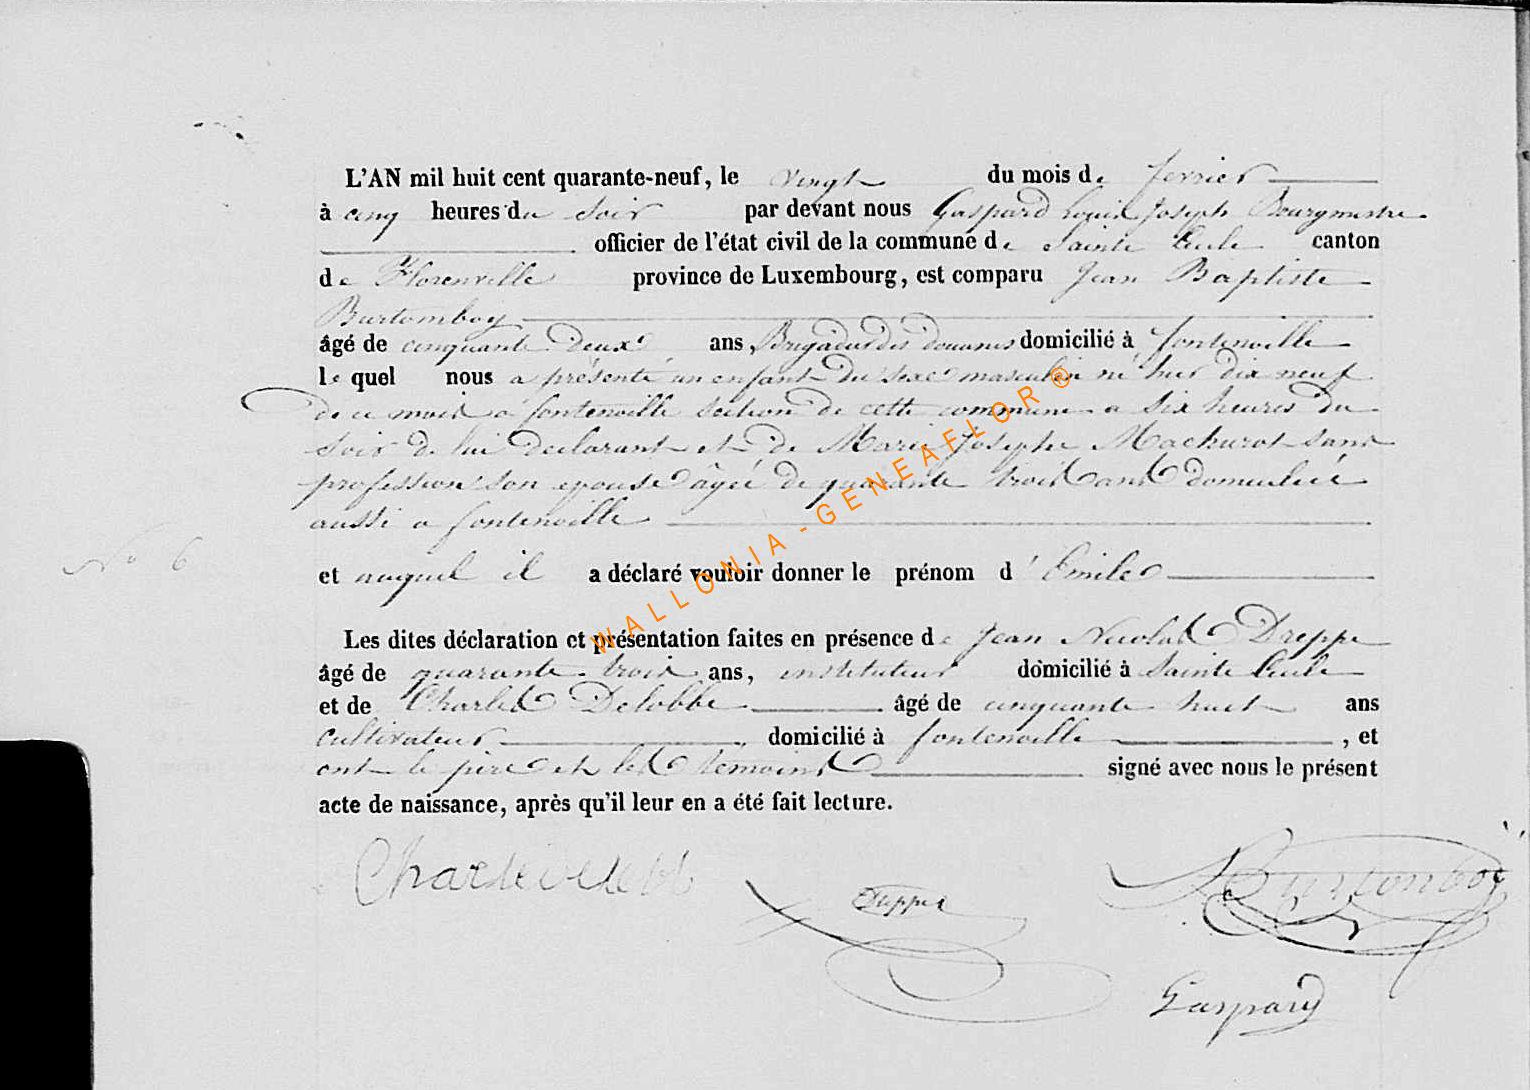 L'AN mil huit cent quarante-neuf, le vingt du mois de fevrier
à cinq heures du soir par devant nous Gaspard Louis Joseph Bourgmestre
officier de l'état civil de la commune de Sainte Cecile canton
de Florenville province de Luxembourg, est comparu Jean Baptiste
Burtomboy
âgé de cinquante deux ans Brigadier des douanes domicilié à fontenoille
le quel nous a présenté un enfant du sexe masculin né hier dix neuf
de ce mois a fontenoille section de cette commune a six heures du
soir de lui declarant et de Marie Josephe Machurot sans
profession son epouse âgée de quarante trois ans domiciliée
aussi a fontenoille
N° 6
et auquel il a déclaré vouloir donner le prénom d' Emile
Les dites déclaration et présentation faites en présence de Jean Nicolas Dreppe
âgé de quarante trois ans, instituteur domicilié à Sainte Cecile
et de Charles Delobbe âgé de cinquante huit ans
cultivateur domicilié à fontenoille , et
ont le père et les témoins signé avec nous le présent
acte de naissance, après qu'il leur en a été fait lecture.
Dreppe
Burtomboy
Gaspard
WALLONIA-GENEAFLOR ©